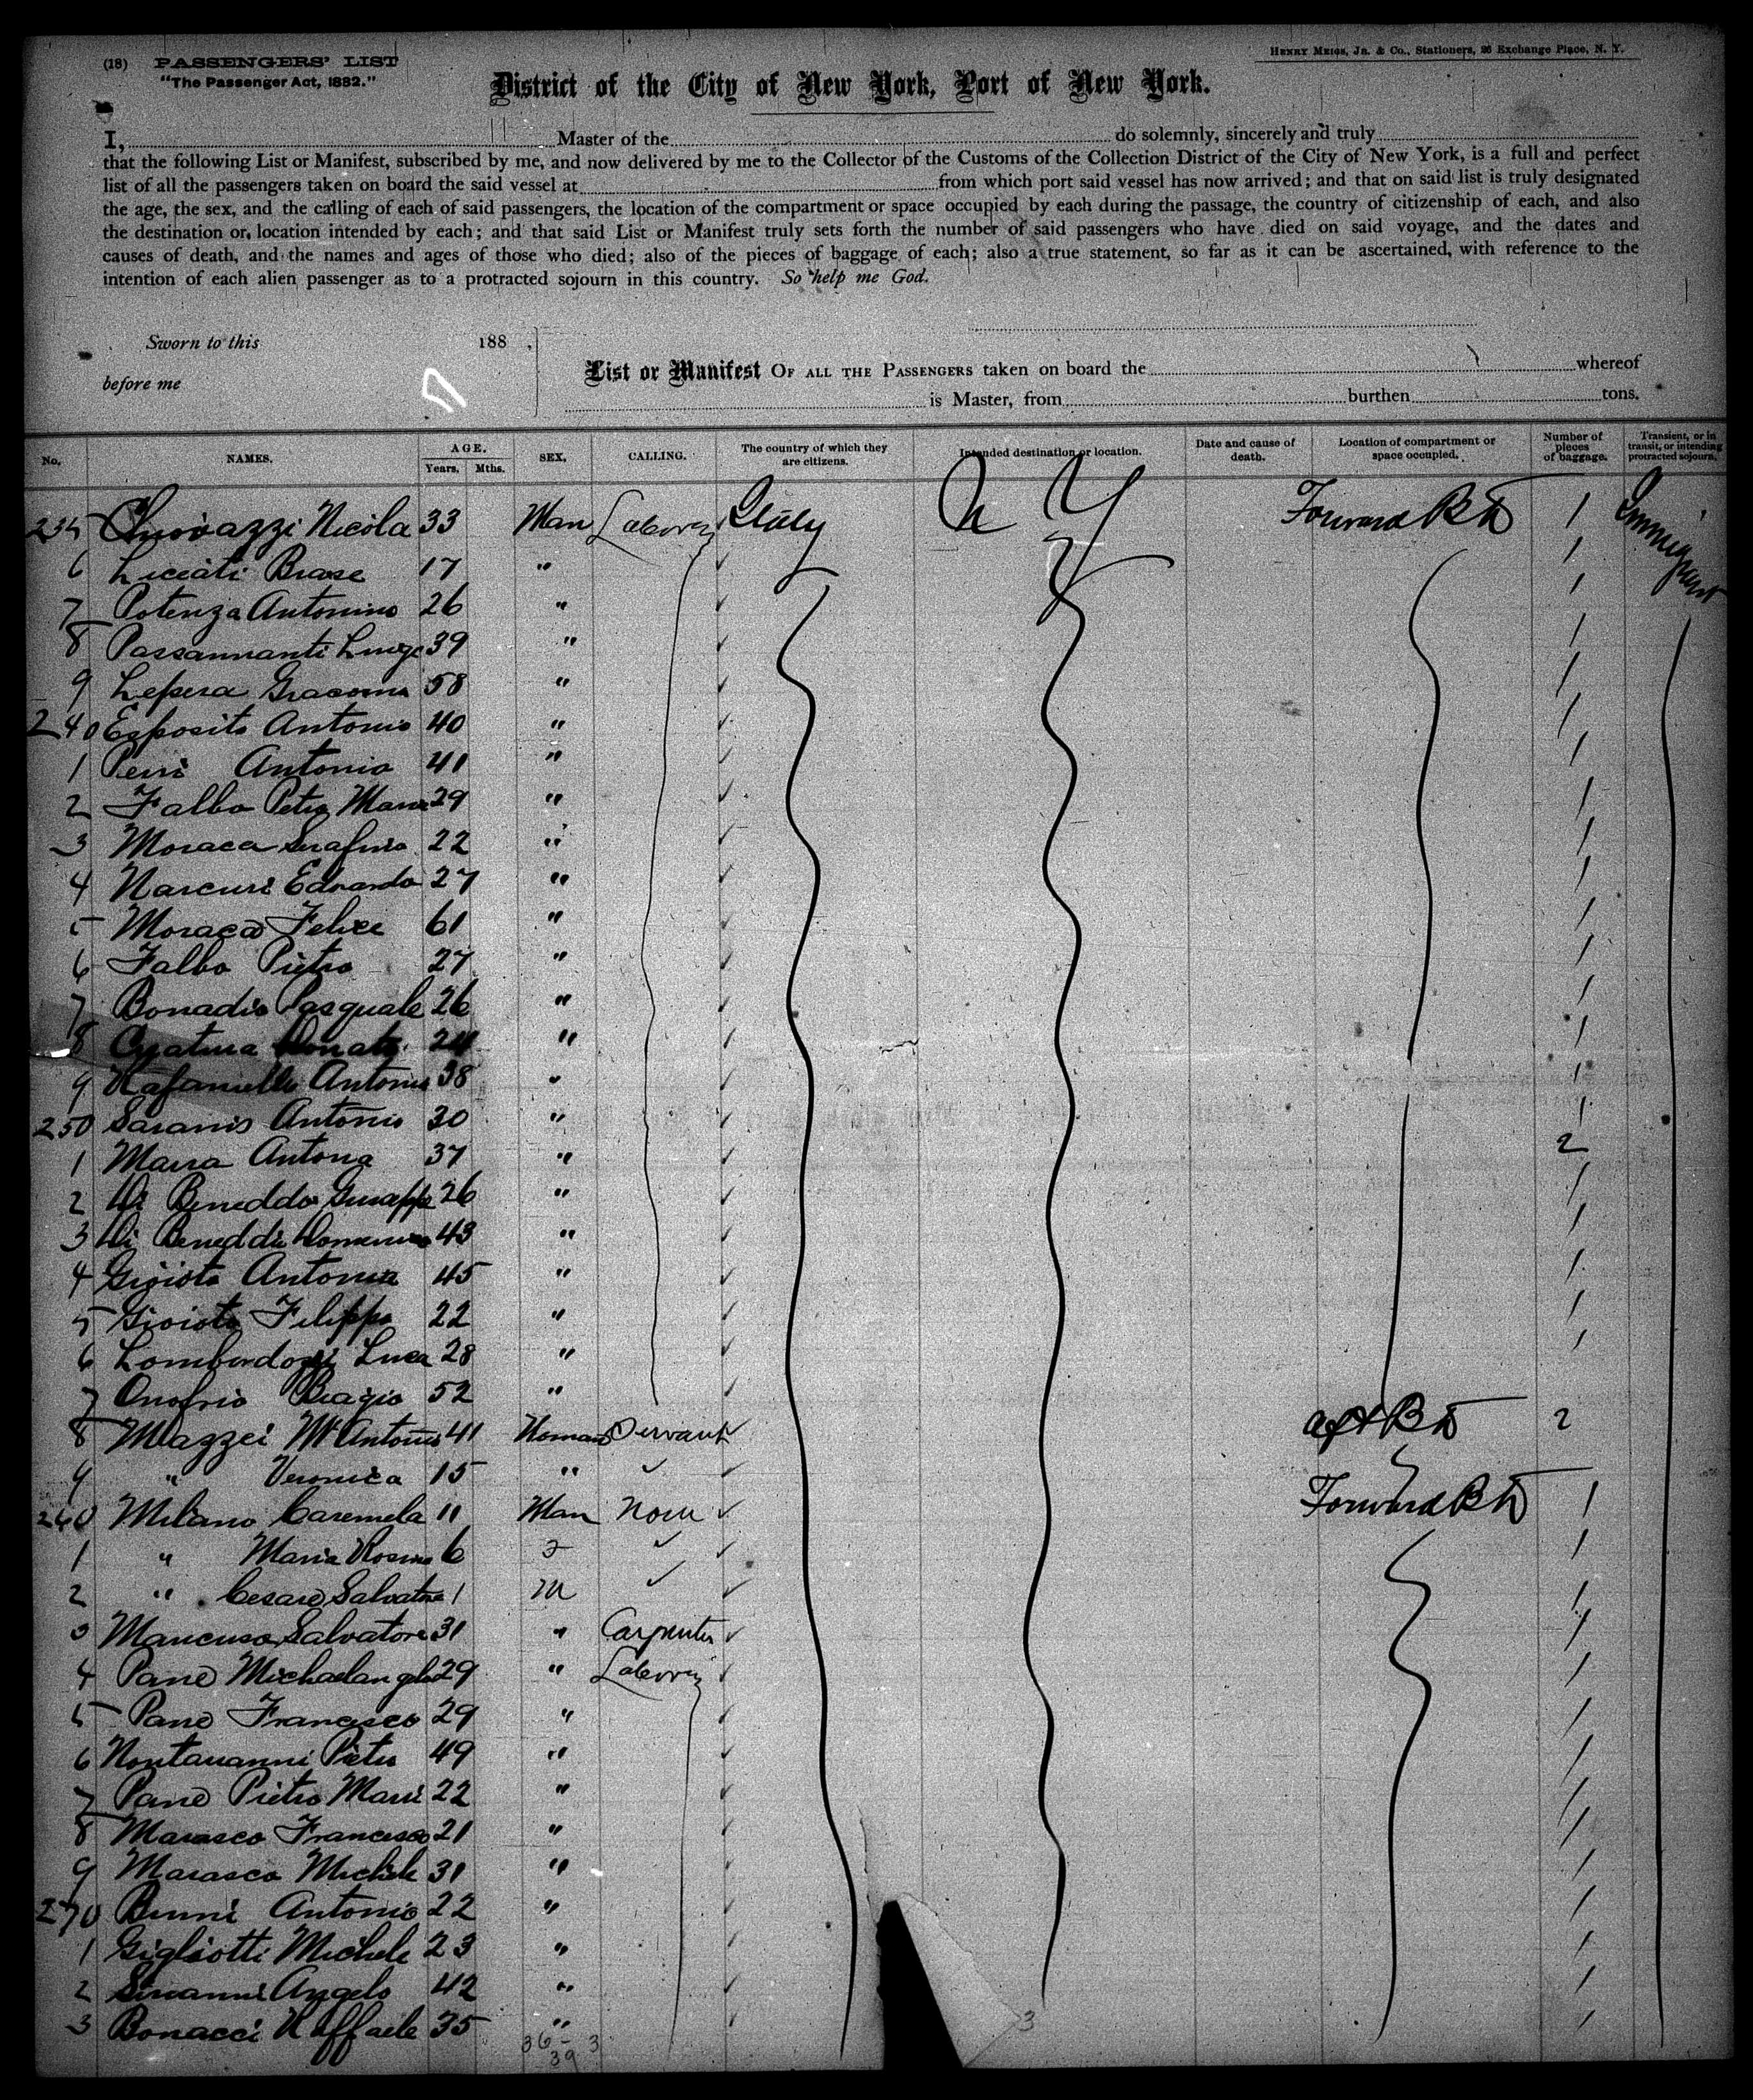 (18) PASSENGERS' LIST
"The Passenger Act, 1882."
HENRY MEIGS, JR. & CO., Stationers, 26 Exchange Place, N. Y.
District of the City of New York, Port of New York.
I, Master of the do solemnly, sincerely and truly
that the following List or Manifest, subscribed by me, and now delivered by me to the Collector of the Customs of the Collection District of the City of New York, is a full and perfect
list of all the passengers taken on board the said vessel at from which port said vessel has now arrived; and that on said list is truly designated
the age, the sex, and the calling of each of said passengers, the location of the compartment or space occupied by each during the passage, the country of citizenship of each, and also
the destination or location intended by each; and that said List or Manifest truly sets forth the number of said passengers who have died on said voyage, and the dates and
causes of death, and the names and ages of those who died; also of the pieces of baggage of each; also a true statement, so far as it can be ascertained, with reference to the
intention of each alien passenger as to a protracted sojourn in this country. So help me God.
Sworn to this 188
before me
List or Manifest OF ALL THE PASSENGERS taken on board the whereof
is Master, from burthen tons.
No. NAMES. AGE. Years. Mths. SEX. CALLING. The country of which they are citizens. Intended destination or location. Date and cause of death. Location of compartment or space occupied. Number of pieces of baggage. Transient, or in transit, or intending protracted sojourn.
235 Nicola 33 Man Laborer Italy N Y Forward 1 Immigrant
6 17 " 1
7 Potenza Antonino 26 " 1
8 Passannanti 39 " 1
9 Lepera Giacomo 58 " 1
240 Esposito Antonio 40 " 1
1 Antonio 41 " 1
2 Falbo 29 " 1
3 Moraca Serafino 22 " 1
4 Edoardo 27 " 1
5 Moraca Felice 61 " 1
6 Falbo Pietro 27 " 1
7 Bonadio Pasquale 26 " 1
8 Donato 24 " 1
9 Rafaniello Antonio 38 " 1
250 Antonio 30 " 1
1 37 " 2
2 Di 26 " 1
3 Di 43 " 1
4 Gioiota 45 " 1
5 Gioiota Filippo 22 " 1
6 Luca 28 " 1
7 Onofrio Biagio 52 "
8 Mazzei 41 Woman Servant Aft 2
9 " Veronica 15 "
260 Milano Caremela 11 Man None Forward 1
1 " Maria 6 1
2 " Cesare Salvatore 1 M 1
3 Mancuso Salvatore 31 " Carpenter 1
4 Pane Michaelangelo 29 " Laborer 1
5 Pane Francesco 29 " 1
6 Pietro 49 " 1
7 Pane Pietro 22 " 1
8 Marasco Francesco 21 " 1
9 Marasco Michele 31 " 1
270 Antonio 22 " 1
1 Gigliotti Michele 23 " 1
2 Angelo 42 " 1
3 Bonacci Raffaele 35 " 1
36 - 3
39
3